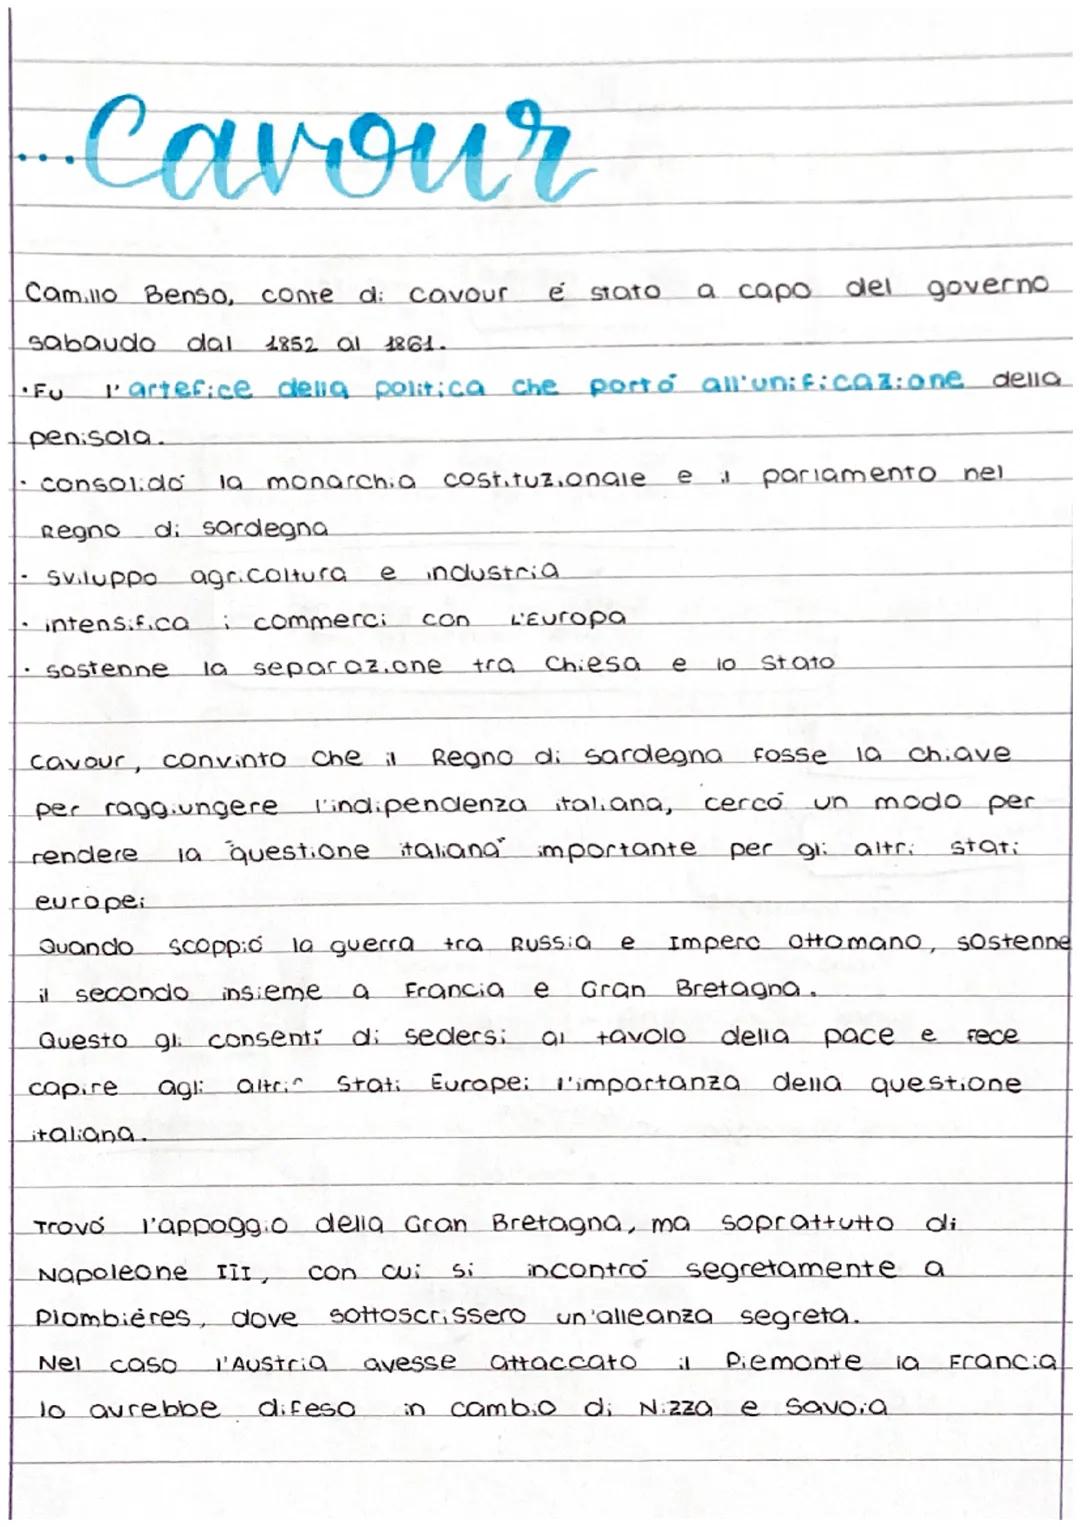 ...Cavour
Camillo Benso, conte di Cavour é stato a capo del governo
sabaudo dal 1852 al 1861.
• Fu l'artefice della politica che portó all'unificazione della
penisola.
• consolidó la monarchia costituzionale e il parlamento nel
Regno di sardegna
• sviluppo agricoltura e industria
• intensifica i commerci con L'Europa
• sostenne la separazione tra Chiesa e lo Stato
Cavour, convinto che il Regno di Sardegna fosse la chiave
per raggiungere l'indipendenza italiana, cercó un modo per
rendere la "questione italiana" importante per gli altri stati
europei
Quando scoppió la guerra tra Russia e Impero Ottomano, sostenne
il secondo insieme a Francia e Gran Bretagna.
Questo gli consentí di sedersi al tavolo della pace e fece
capire agli altri Stati Europei l'importanza della questione
italiana.
Trovó l'appoggio della Gran Bretagna, ma soprattutto di
Napoleone III, con cui si incontró segretamente a
Plombiéres, dove sottoscrissero un'alleanza segreta.
Nel caso l'Austria avesse attaccato il Piemonte la Francia
lo avrebbe difeso in cambio di Nizza e Savoia